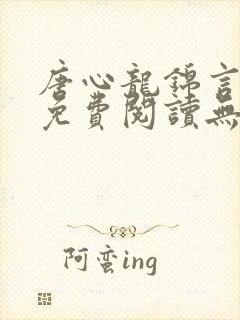 唐心龍錦言
免費閱讀無
阿蛮ing